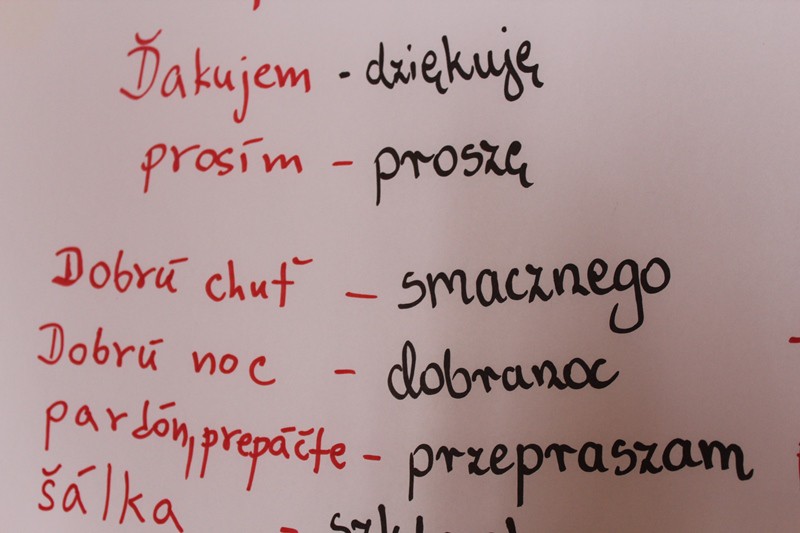 Ďakujem - dziękuję
prosím - proszę
Dobrú chuť - smacznego
Dobrú noc - dobranoc
pardón, prepáčte - przepraszam
šálka -